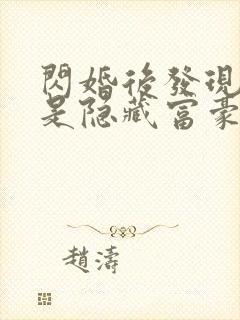 閃婚後發現
是隐藏富豪
趙濤